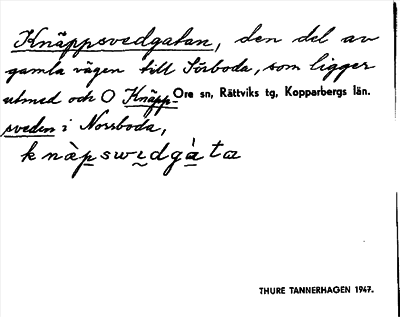 Knäppsvedgatan, den del av
gamla vägen till Sörboda, som ligger
utmed och O Knäpp-
Ore sn, Rättviks tg, Kopparbergs län.
sveden i Norrboda,
knàpswidgàta
THURE TANNERHAGEN 1947.